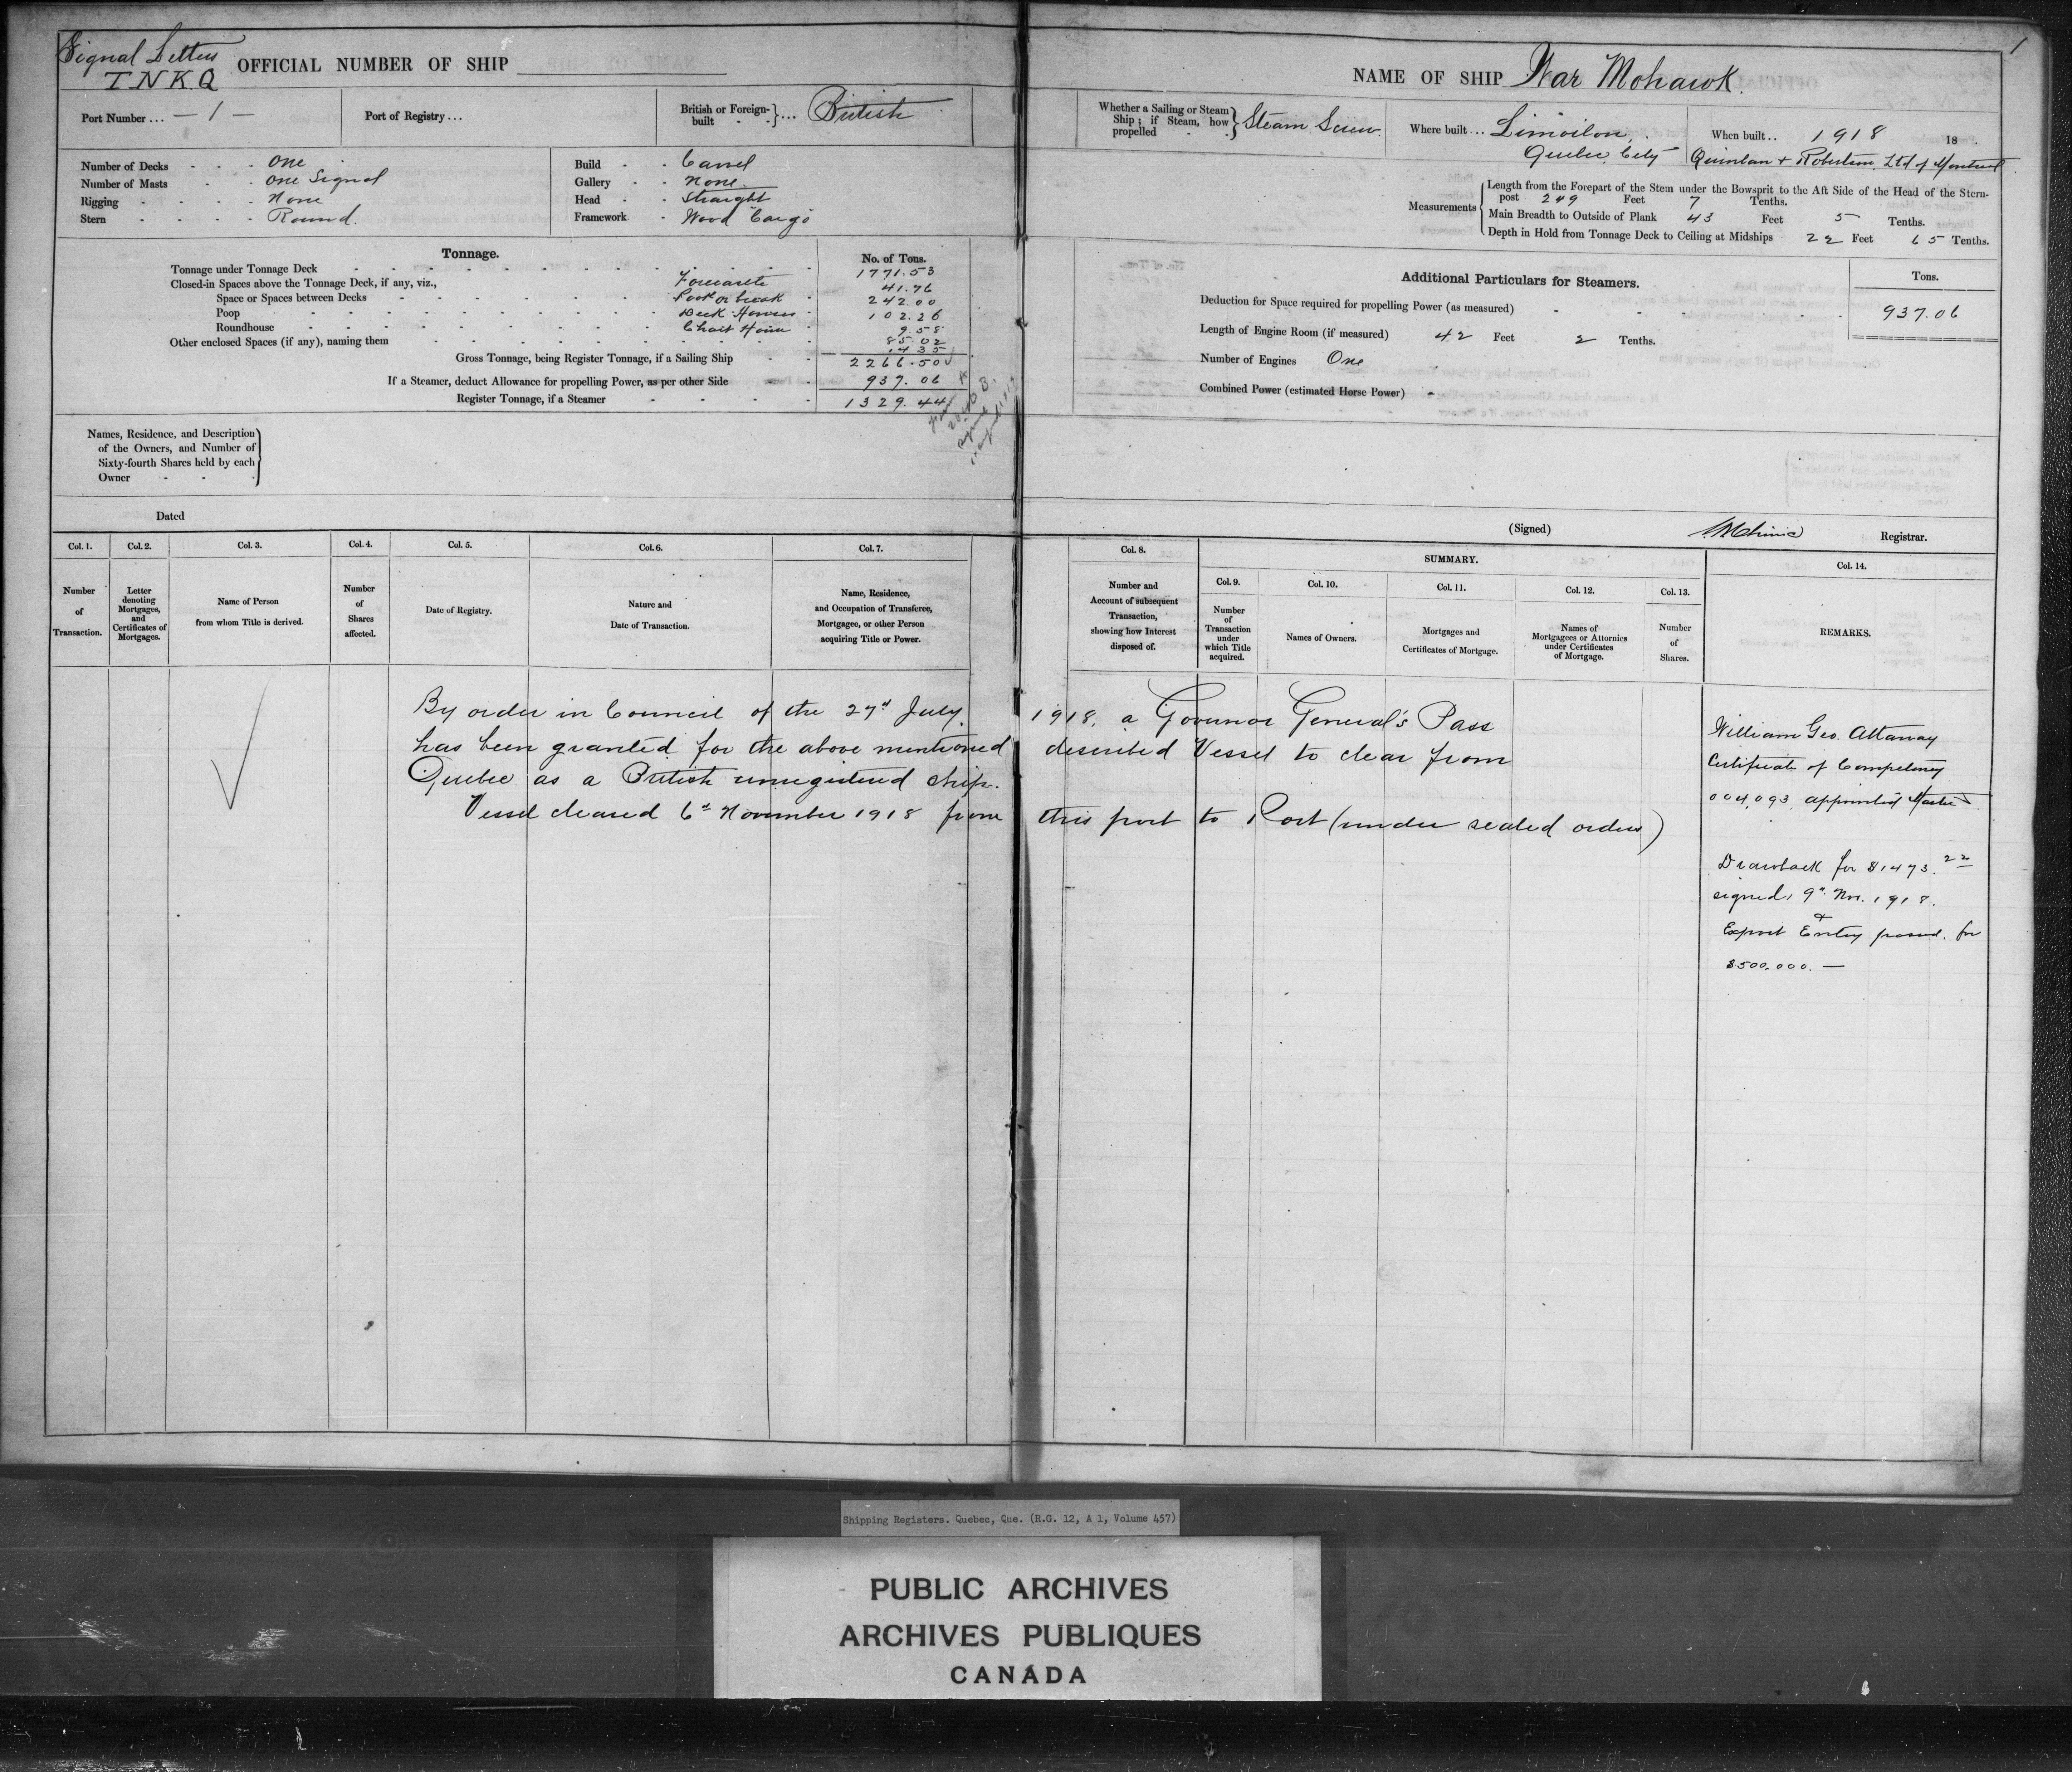 Signal Letters
T N K Q
OFFICIAL NUMBER OF SHIP
Port Number ... — 1 —
Port of Registry ...
British or Foreign-built ... British
Number of Decks - One
Number of Masts - One Signal
Rigging - None
Stern - Round.
Build - Carvel
Gallery - None.
Head - Straight
Framework - Wood Cargo
Tonnage.
No. of Tons.
Tonnage under Tonnage Deck 1771.53
Closed-in Spaces above the Tonnage Deck, if any, viz., Forecastle 41.76
Space or Spaces between Decks Poop or break 242.00
Poop Deck Houses 102.26
Roundhouse Chart House 9.58
Other enclosed Spaces (if any), naming them 85.02
14 35
Gross Tonnage, being Register Tonnage, if a Sailing Ship 2266.50
If a Steamer, deduct Allowance for propelling Power, as per other Side 937.06
Register Tonnage, if a Steamer 1329.44
Names, Residence, and Description
of the Owners, and Number of
Sixty-fourth Shares held by each
Owner
Dated
Col. 1. Col. 2. Col. 3. Col. 4. Col. 5. Col. 6. Col. 7.
Number of Transaction.
Letter denoting Mortgages, and Certificates of Mortgages.
Name of Person from whom Title is derived.
Number of Shares affected.
Date of Registry.
Nature and Date of Transaction.
Name, Residence, and Occupation of Transferee, Mortgagee, or other Person acquiring Title or Power.
1
NAME OF SHIP War Mohawk.
Whether a Sailing or Steam Ship; if Steam, how propelled Steam Screw
Where built ... Limoilou,
Quebec City
When built .. 1918 18 .
Quinlan + Robertson Ltd of Montreal
Measurements
Length from the Forepart of the Stem under the Bowsprit to the Aft Side of the Head of the Stern-
post 249 Feet 7 Tenths.
Main Breadth to Outside of Plank 43 Feet 5 Tenths.
Depth in Hold from Tonnage Deck to Ceiling at Midships 22 Feet 65 Tenths.
Additional Particulars for Steamers.
Tons.
Deduction for Space required for propelling Power (as measured) 937.06
Length of Engine Room (if measured) 42 Feet 2 Tenths.
Number of Engines One
Combined Power (estimated Horse Power) -
(Signed) Registrar.
Col. 8. SUMMARY. Col. 14.
Col. 9. Col. 10. Col. 11. Col. 12. Col. 13.
Number and Account of subsequent Transaction, showing how Interest disposed of.
Number of Transaction under which Title acquired.
Names of Owners.
Mortgages and Certificates of Mortgage.
Names of Mortgagees or Attornies under Certificates of Mortgage.
Number of Shares.
REMARKS.
By order in Council of the 27th July, 1918, a Govenor General's Pass
has been granted for the above mentioned described Vessel to clear from
Quebec as a British unregistered ship.
Vessel cleared 6th November 1918 from this port to Port (under sealed orders)
William Geo. Attaway
Certificate of Competency
004,093 appointed Master
Drawback for $1473.22
signed, 9th Nov. 1918.
&
Export Entry passed. for
$500,000. —
Shipping Registers. Quebec, Que. (R.G. 12, A 1, Volume 457)
PUBLIC ARCHIVES
ARCHIVES PUBLIQUES
CANADA